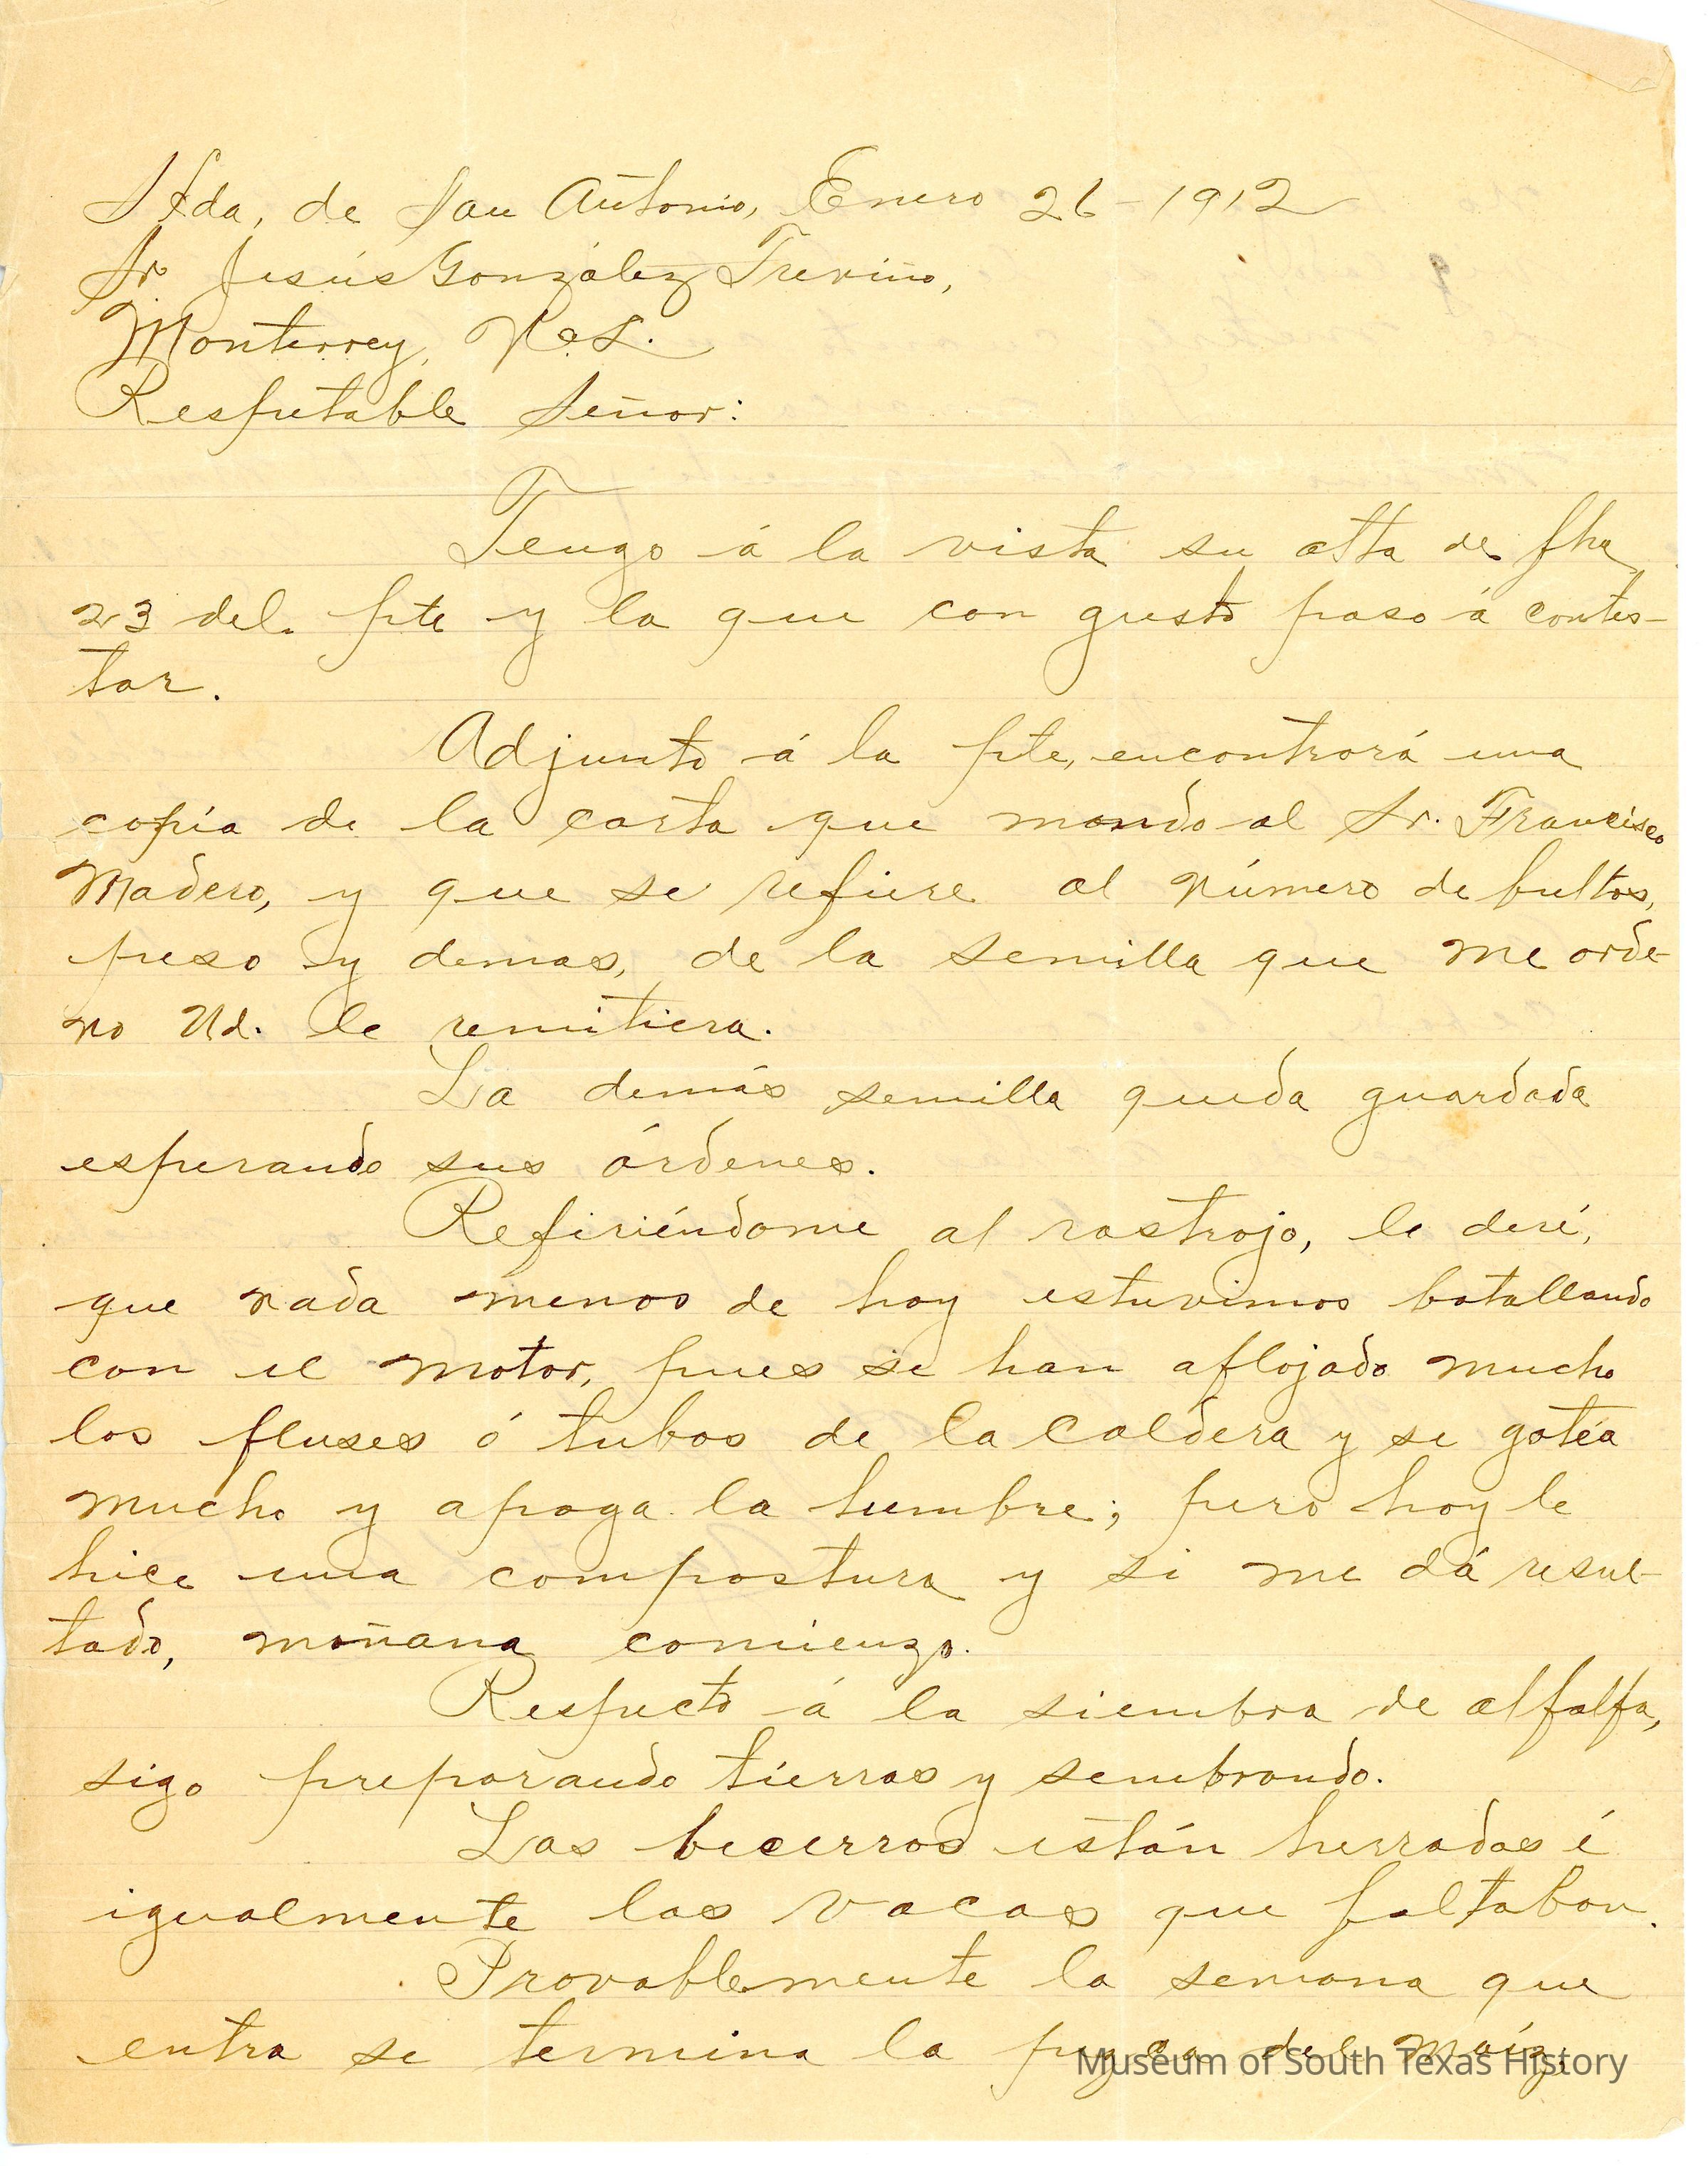 Hda, de San Antonio, Enero 26-1912
Sr Jesús González Treviño,
Monterrey, N.L.
Respetable Señor:
Tengo á la vista su atta de fha
23 del pte y la que con gusto paso á contes-
tar.
Adjunto á la pte, encontrará una
copia de la carta que mando al Sr. Francisco
Madero, y que se refiere al número de bultos,
peso y demas, de la semilla que me orde-
no Ud. le remitiera.
La demás semilla queda guardada
esperando sus órdenes.
Refiriéndome al rastrojo, le deré,
que nada menos de hoy estuvimos batallando
con el motor, pues se han aflojado mucho
los fluses ó tubos de la caldera y se gotéa
mucho y apaga la lumbre; pero hoy le
hice una compostura y si me dá resul-
tado, mañana comienzo.
Respecto á la siembra de alfalfa,
sigo preparando tierras y sembrando.
Los becerros están herrados é
igualmente las vacas que faltaban.
Provablemente la semana que
entra se termina la pizca del maíz.
Museum of South Texas History